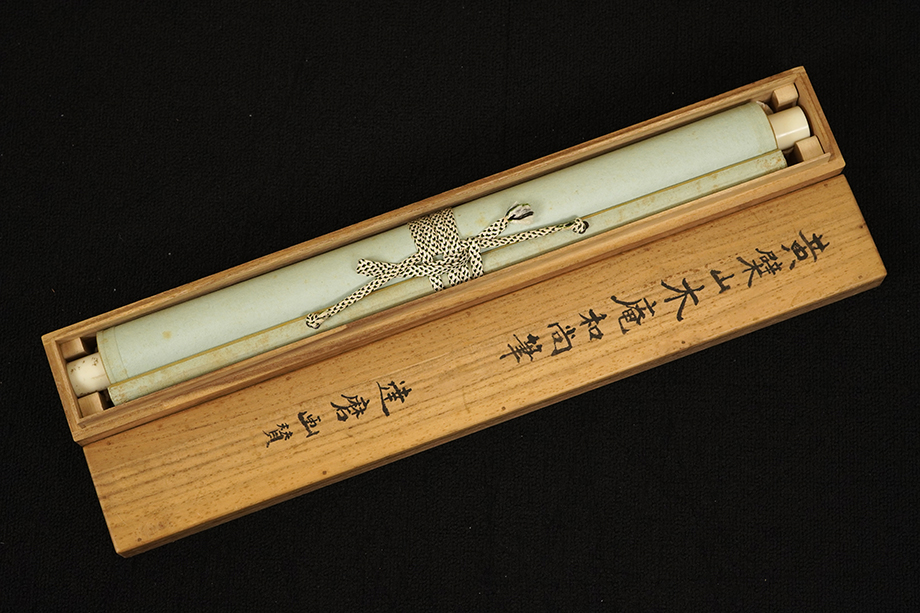 黄檗山木庵和尚筆
達磨画賛